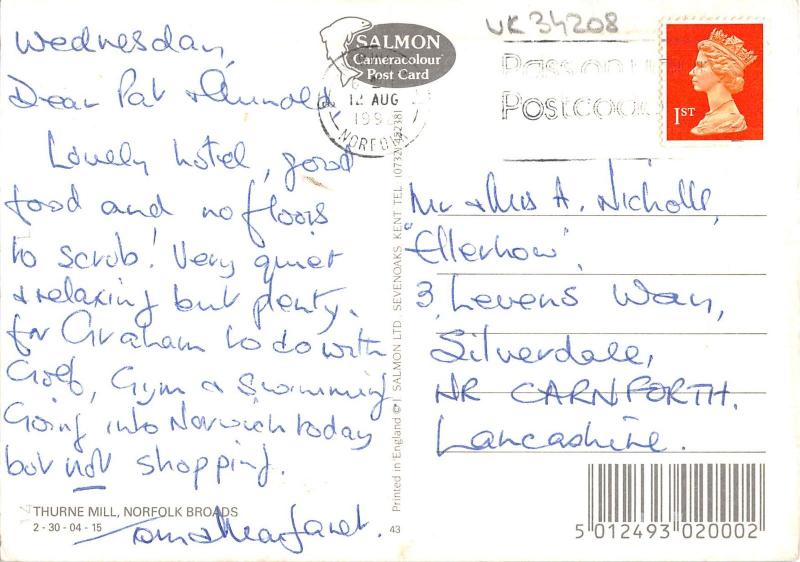 Wednesday,
Dear Pat & Arnold,
Lovely hotel, good
food and no floors
to scrub! Very quiet
& relaxing but plenty
for Graham to do with
Golf, Gym & Swimming
Going into Norwich today
but not shopping.
Tom & Margaret.
THURNE MILL, NORFOLK BROADS
2-30-04-15
SALMON
Cameracolour
Post Card
12 AUG
NORFOLK
UK 34208
Pass on your
Postcode
1ST
Printed in England © J SALMON LTD. SEVENOAKS KENT TEL (0732) 452381
43
Mr & Mrs A. Nicholls,
"Ellerhow",
3, Levens Way,
Silverdale,
NR CARNFORTH.
Lancashire.
5 012493 020002